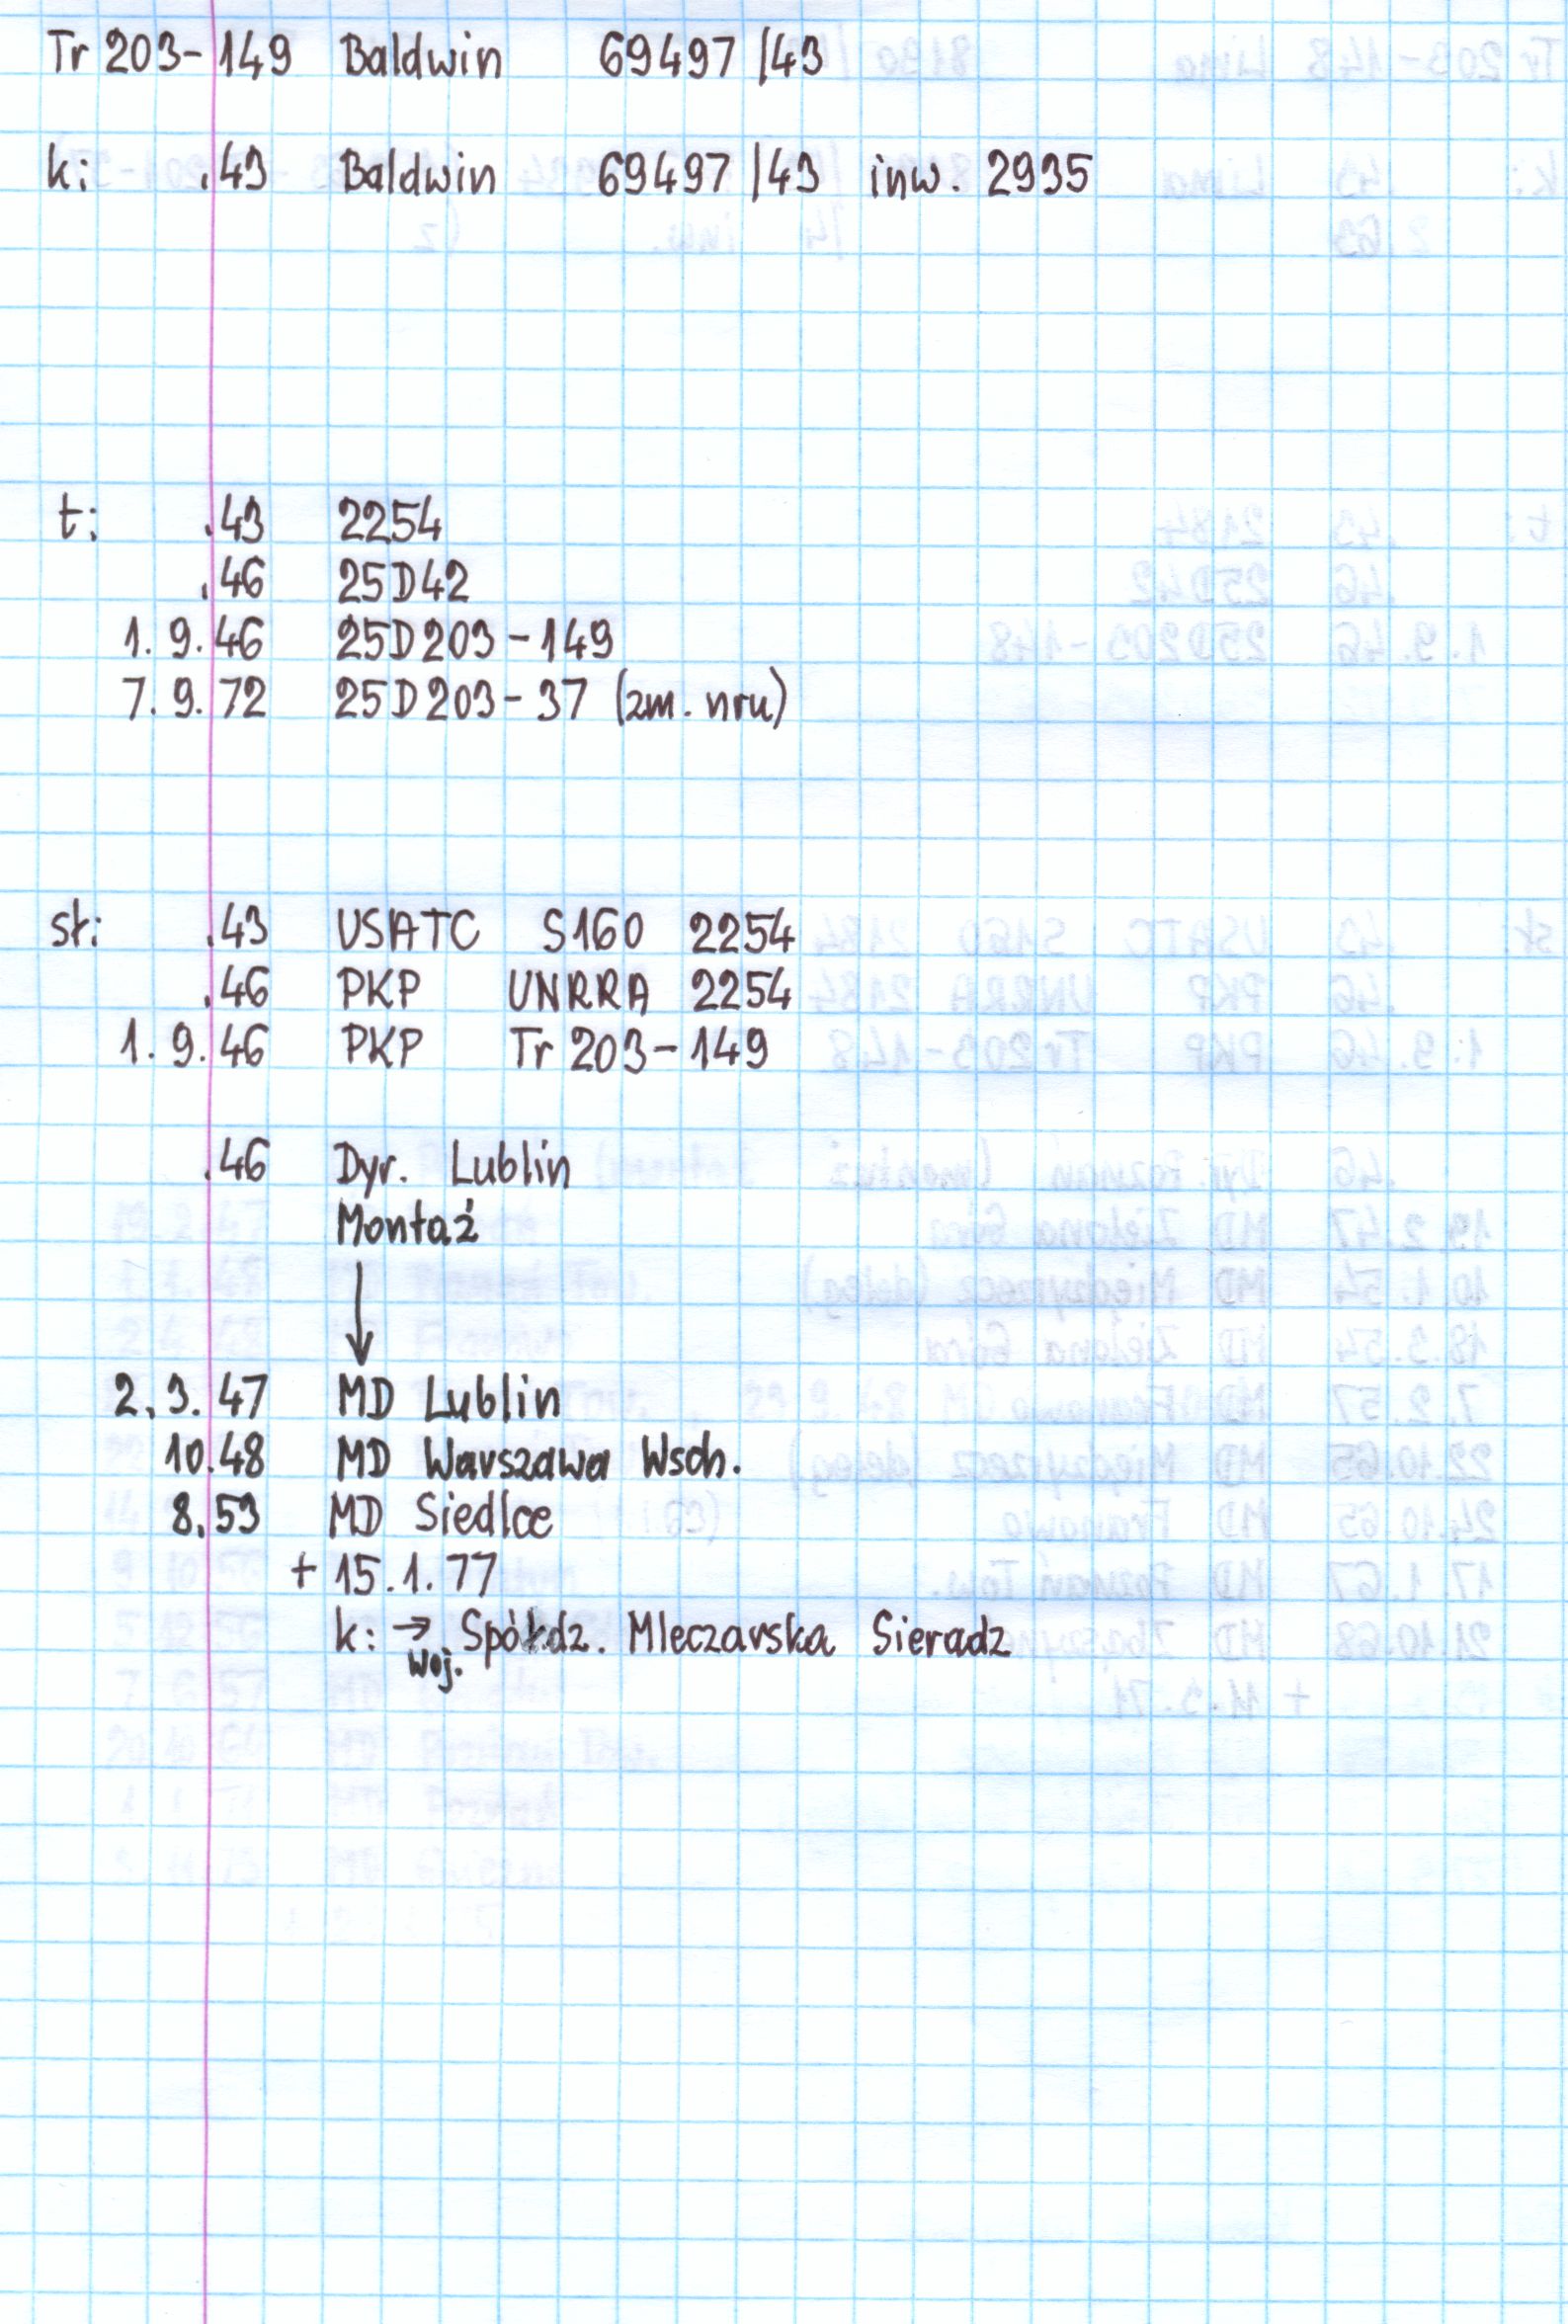 Tr 203-149 Baldwin 69497/43
k: .43 Baldwin 69497/43 inw. 2935
t: .43 2254
.46 25D42
1.9.46 25D203-149
7.9.72 25D203-37 (zm. nru)
st: .43 USATC S160 2254
.46 PKP UNRRA 2254
1.9.46 PKP Tr 203-149
.46 Dyr. Lublin
Montaż
↓
2.3.47 MD Lublin
10.48 MD Warszawa Wsch.
8.53 MD Siedlce
+ 15.1.77
k: → Spółdz. Mleczarska Sieradz
woj.